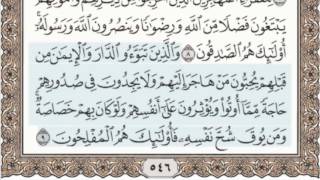 يَبْتَغُونَ فَضْلًا مِّنَ ٱللَّهِ وَرِضْوَٰنًا وَيَنصُرُونَ ٱللَّهَ وَرَسُولَهُۥٓ
أُو۟لَٰٓئِكَ هُمُ ٱلصَّٰدِقُونَ ٨ وَٱلَّذِينَ تَبَوَّءُو ٱلدَّارَ وَٱلْإِيمَٰنَ مِن
قَبْلِهِمْ يُحِبُّونَ مَنْ هَاجَرَ إِلَيْهِمْ وَلَا يَجِدُونَ فِى صُدُورِهِمْ
حَاجَةً مِّمَّآ أُوتُوا۟ وَيُؤْثِرُونَ عَلَىٰٓ أَنفُسِهِمْ وَلَوْ كَانَ بِهِمْ خَصَاصَةٌ
وَمَن يُوقَ شُحَّ نَفْسِهِۦ فَأُو۟لَٰٓئِكَ هُمُ ٱلْمُفْلِحُونَ ٩
٥٤٦